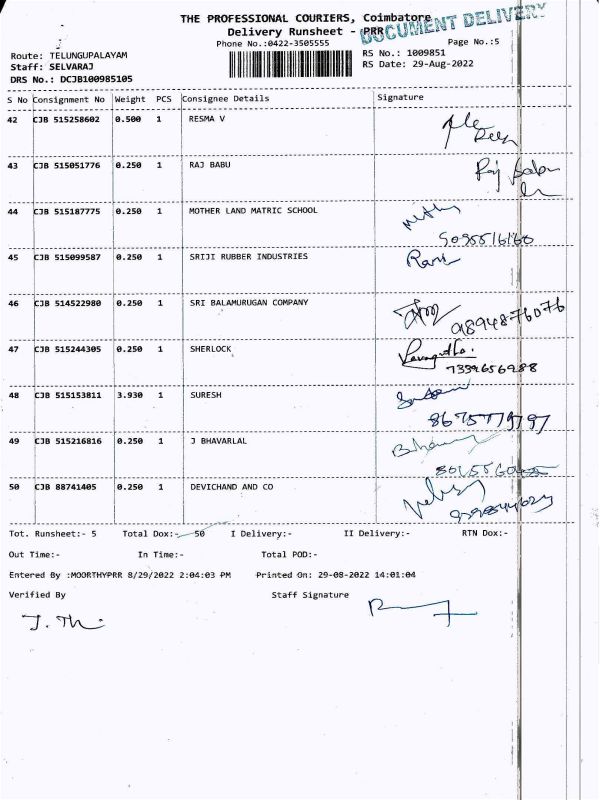 THE PROFESSIONAL COURIERS, Coimbatore
DOCUMENT DELIVERY
Delivery Runsheet - PRR
Phone No.:0422-3505555
Page No.:5
Route: TELUNGUPALAYAM
RS No.: 1009851
Staff: SELVARAJ
RS Date: 29-Aug-2022
DRS No.: DCJB100985105
S No Consignment No Weight PCS Consignee Details Signature
42 CJB 515258602 0.500 1 RESMA V
43 CJB 515051776 0.250 1 RAJ BABU Raj Babu
44 CJB 515187775 0.250 1 MOTHER LAND MATRIC SCHOOL
45 CJB 515099587 0.250 1 SRIJI RUBBER INDUSTRIES
46 CJB 514522980 0.250 1 SRI BALAMURUGAN COMPANY
9894876076
47 CJB 515244305 0.250 1 SHERLOCK
7339656988
48 CJB 515153811 3.930 1 SURESH
49 CJB 515216816 0.250 1 J BHAVARLAL
50 CJB 88741405 0.250 1 DEVICHAND AND CO
Tot. Runsheet:- 5 Total Dox:- 50 I Delivery:- II Delivery:- RTN Dox:-
Out Time:- In Time:- Total POD:-
Entered By :MOORTHYPRR 8/29/2022 2:04:03 PM Printed On: 29-08-2022 14:01:04
Verified By Staff Signature